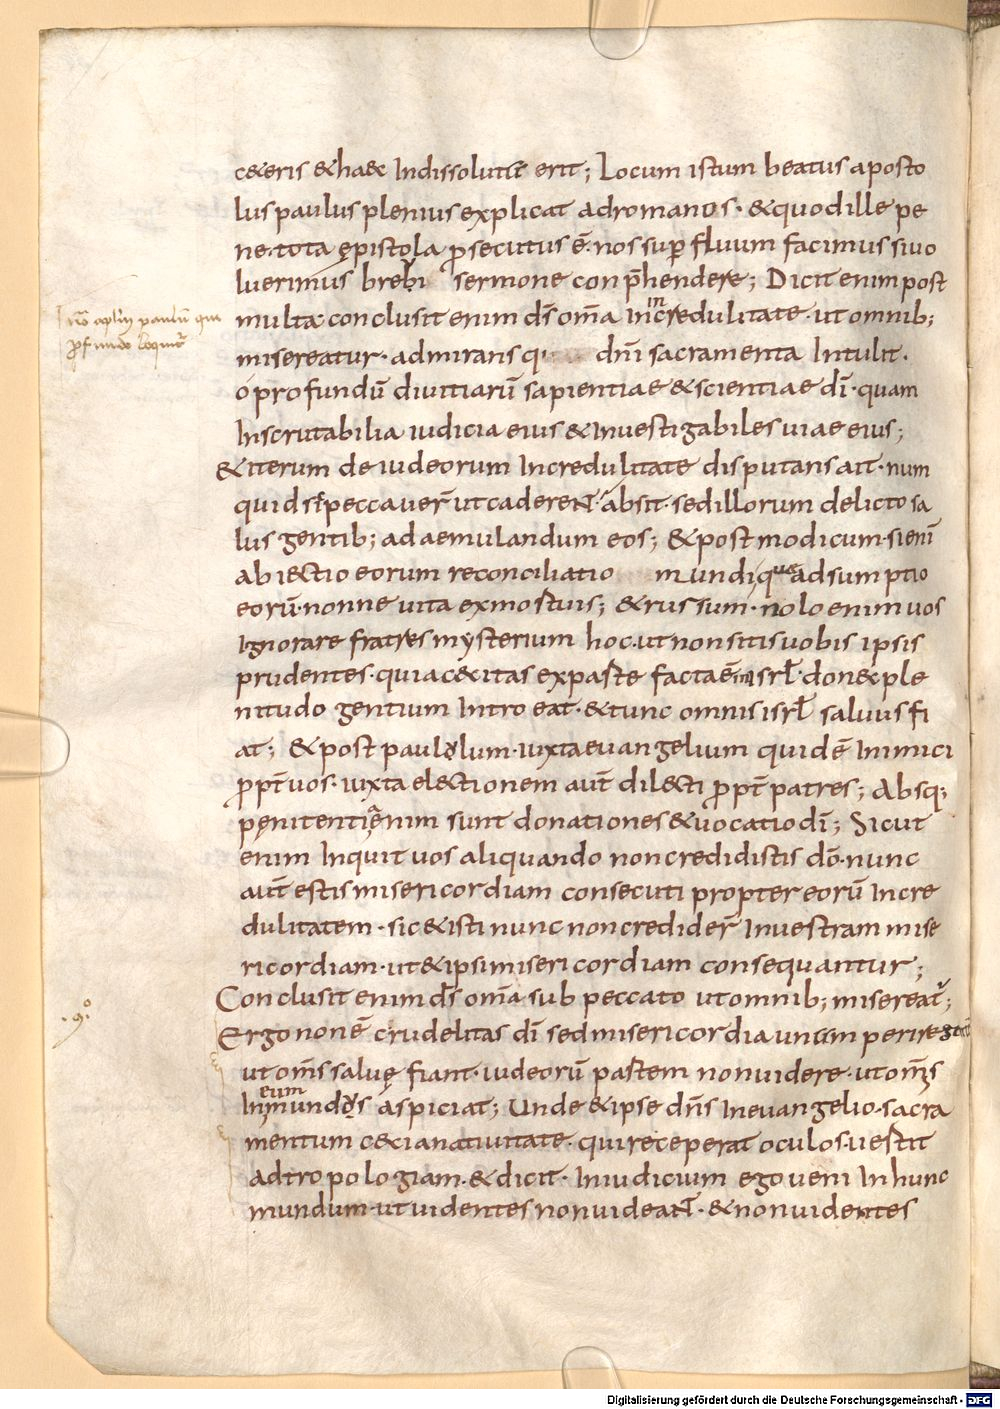 c&eris & haec Indissolutū erit; Locum istum beatus aposto
lus paulus plenius explicat ad romanos· & quod ille pe
ne· tota ępistola p̱secutus ē· nos sup̱fluum facimus si uo
luerimus brebi sermone conp̄hendere; Dicit enim post
multa· conclusit enim d̄s om̄a In incredulitate· ut omnib;
misereatur· admirans q dn̄i sacramenta Intulit·
ó profundū diuitiarū sapientiae & scientiae dī· quam
Inscrutabilia iudicia eius & Inuestigabiles uiae eius;
& iterum de iudeorum Incredulitate disputans ait· num
quid sic peccauer̄ ut caderent· absit· sed illorum delicto sa
lus gentib; ad aemulandum eos; & post modicum· si enī
abiectio eorum reconciliatio mundi quae adsumptio
eorū· nonne uita ex mortuis; & rursum· nolo enim uos
Ignorare fratres mysterium hoc· ut non sitis uobis ipsis
prudentes· quia c&citas ex parte facta ē in isrł· donec ple
nitudo gentium Intro eat· & tunc omnis isrł saluus fi
at; & post paululum· iuxta euangelium quidē Inimici
p̱pt̄ uos· iuxta electionem aut̄ dilecti p̱pt̄ patres; Absq;
pęnitentia enim sunt donationes & uocatio dī; Sicut
enim Inquit uos aliquando non credidistis dō· nunc
aut̄ estis misericordiam consecuti propter eorū Incre
dulitatem· sic & isti nunc non credider̄ In uestram mise
ricordiam· ut & ipsi misericordiam consequantur;
Conclusit enim d̄s om̄a sub peccato ut omnib; misereat̄;
Ergo non ē crudelitas dī sed misericordia unam perire gentē
ut om̄s saluę fiant· iudeorū partem non uidere· ut om̄s
eum
In mundus aspiciat; Unde & ipse dn̄s In euangelio· sacra
mentum c&ci a natiuitate· qui receperat oculos· uertit
ad tropologiam· & dicit· In iudicium ego ueni In hunc
mundum· ut uidentes non uideant· & non uidentes